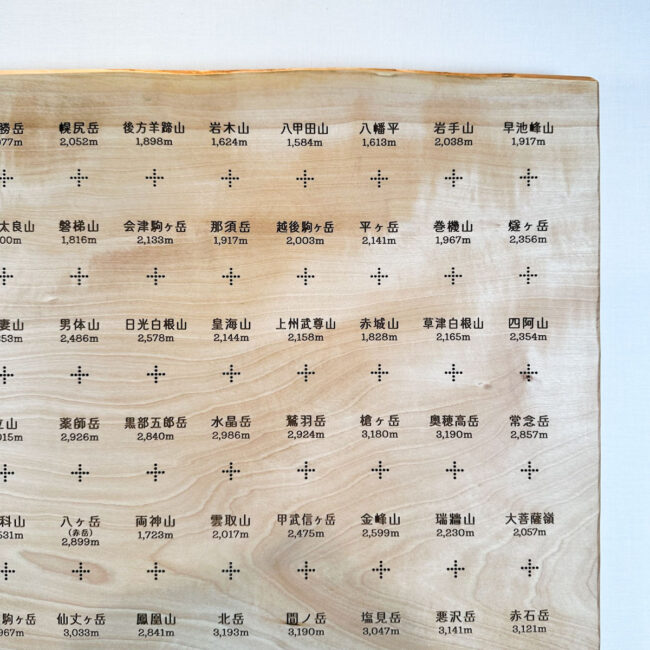 勝岳 幌尻岳 後方羊蹄山 岩木山 八甲田山 八幡平 岩手山 早池峰山
077m 2,052m 1,898m 1,624m 1,584m 1,613m 2,038m 1,917m
太良山 磐梯山 会津駒ヶ岳 那須岳 越後駒ヶ岳 平ヶ岳 巻機山 燧ヶ岳
00m 1,816m 2,133m 1,917m 2,003m 2,141m 1,967m 2,356m
妻山 男体山 日光白根山 皇海山 上州武尊山 赤城山 草津白根山 四阿山
53m 2,486m 2,578m 2,144m 2,158m 1,828m 2,165m 2,354m
立山 薬師岳 黒部五郎岳 水晶岳 鷲羽岳 槍ヶ岳 奥穂高岳 常念岳
015m 2,926m 2,840m 2,986m 2,924m 3,180m 3,190m 2,857m
科山 八ヶ岳 両神山 雲取山 甲武信ヶ岳 金峰山 瑞牆山 大菩薩嶺
531m (赤岳) 1,723m 2,017m 2,475m 2,599m 2,230m 2,057m
2,899m
駒ヶ岳 仙丈ヶ岳 鳳凰山 北岳 間ノ岳 塩見岳 悪沢岳 赤石岳
967m 3,033m 2,841m 3,193m 3,190m 3,047m 3,141m 3,121m